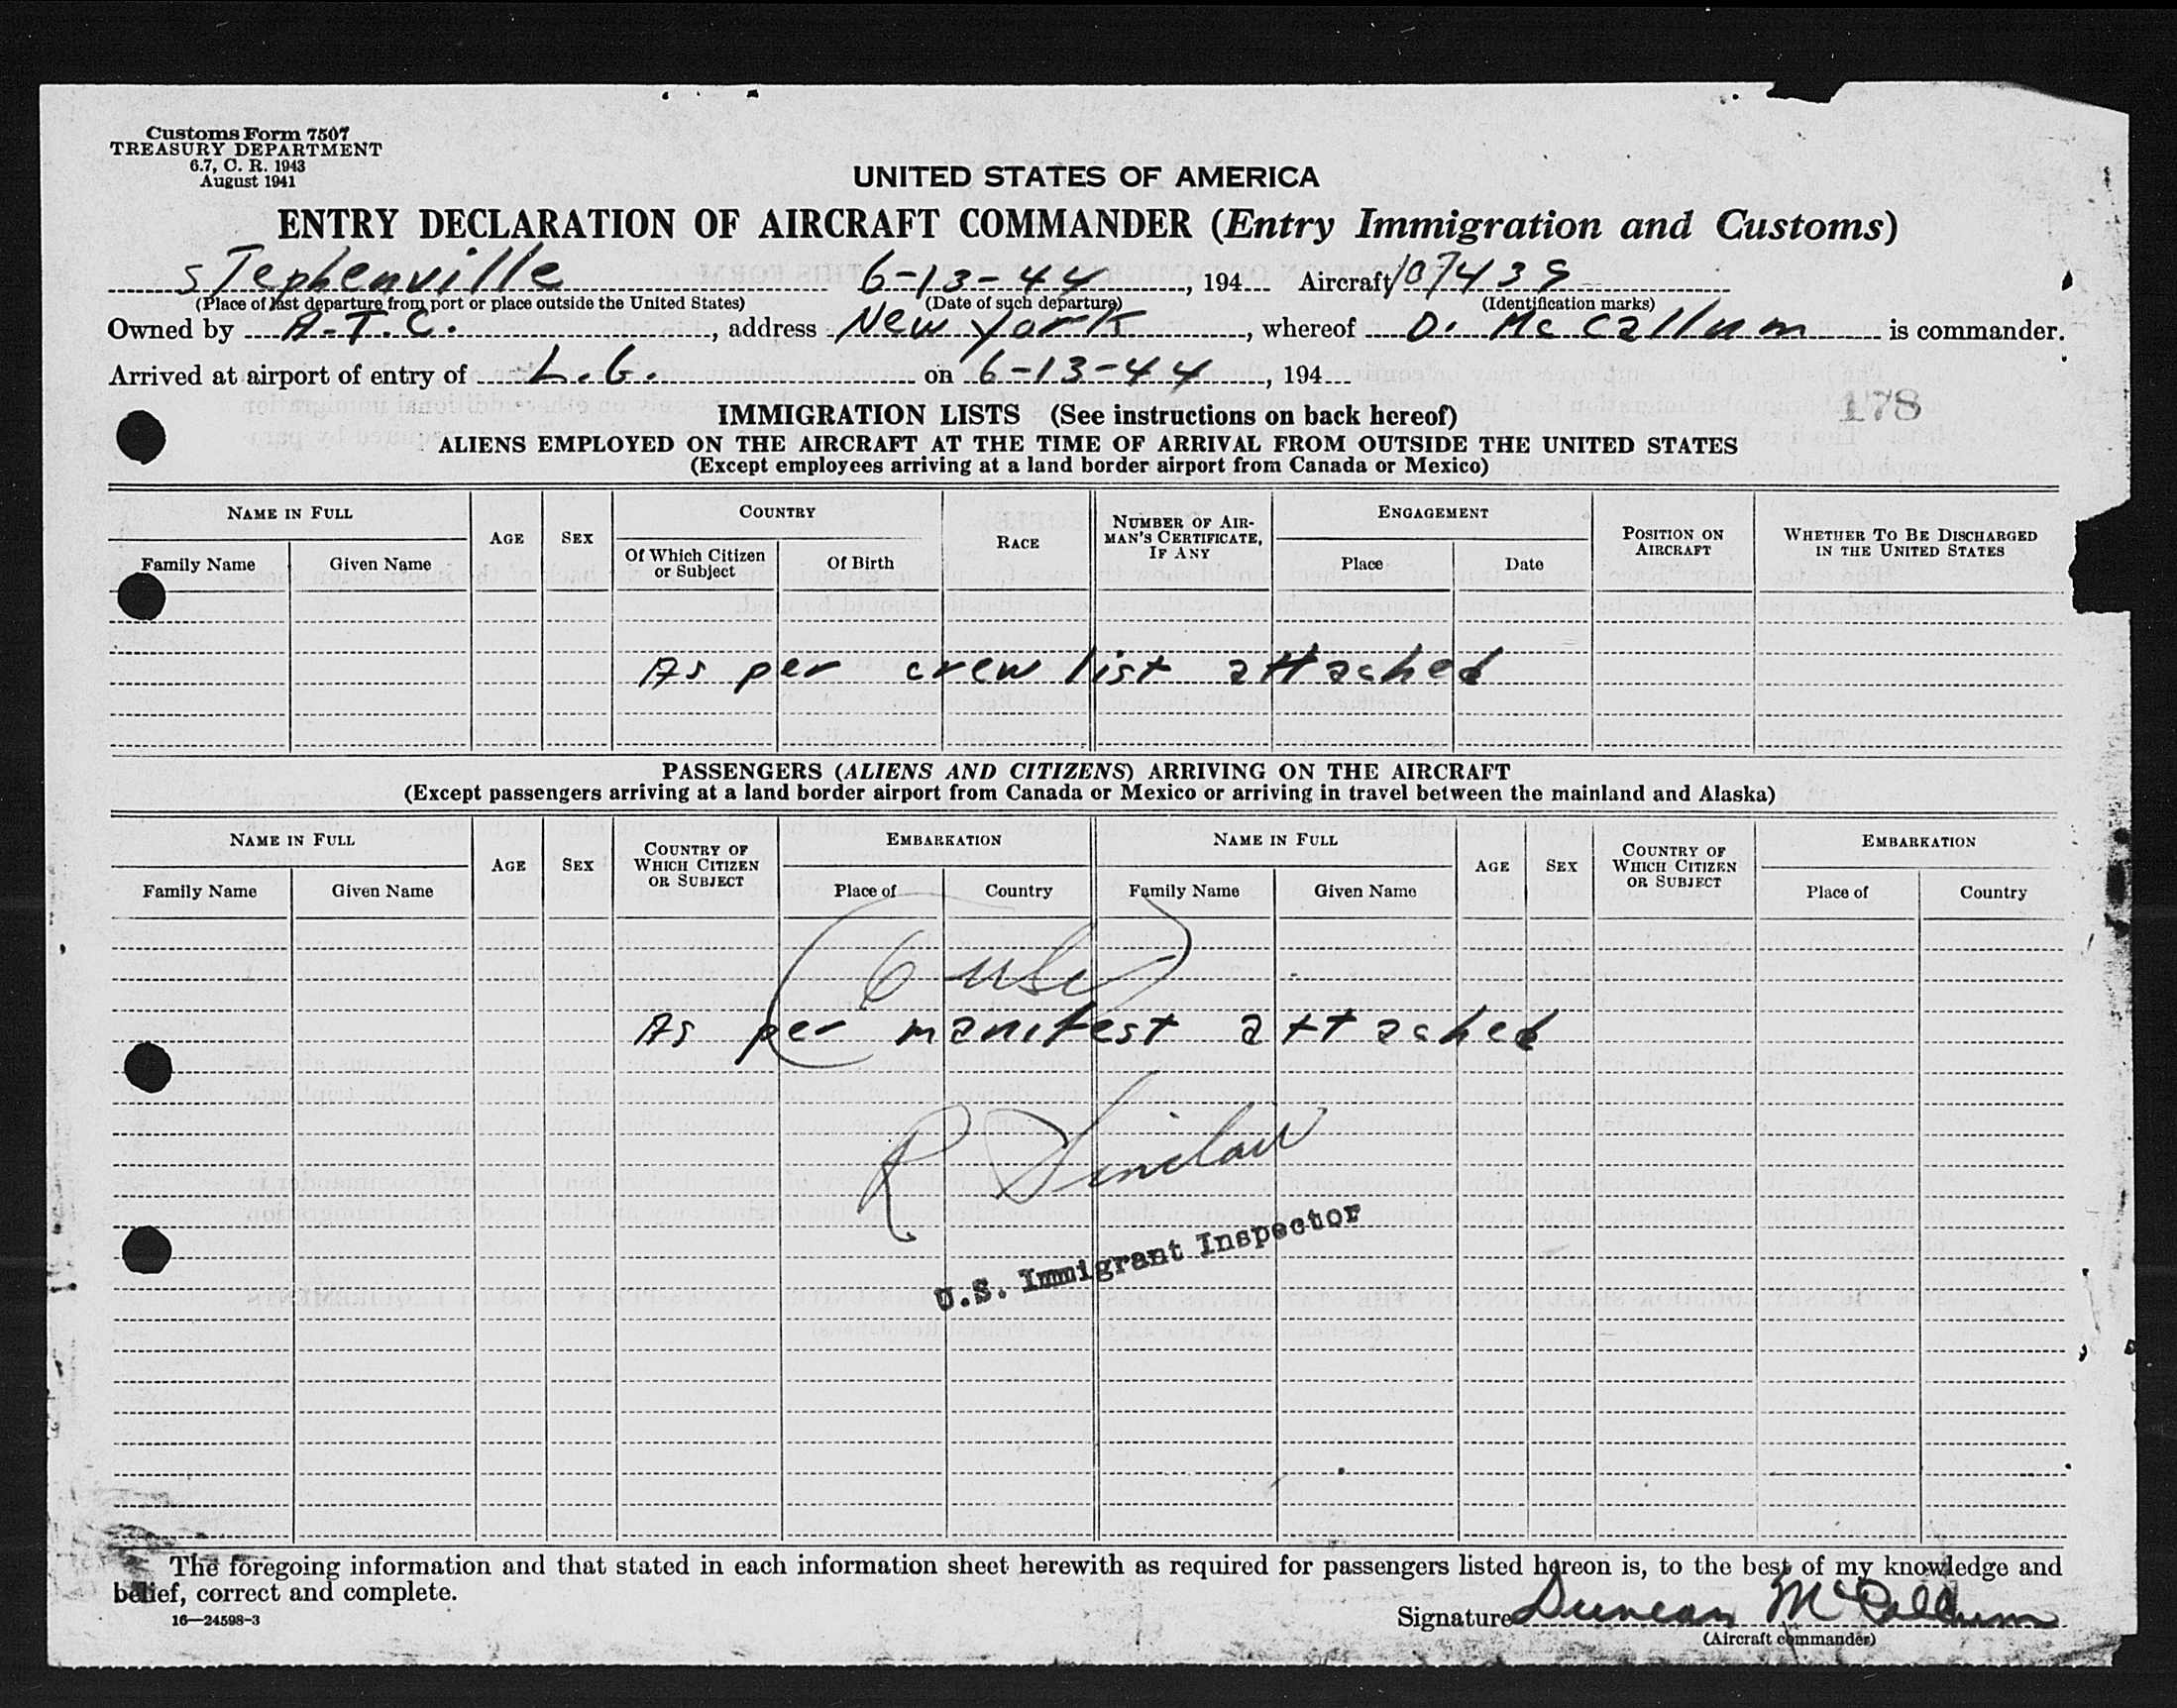 Customs Form 7507
TREASURY DEPARTMENT
6.7, C. R. 1943
August 1941
UNITED STATES OF AMERICA
ENTRY DECLARATION OF AIRCRAFT COMMANDER (Entry Immigration and Customs)
Stephenville 6-13-44, 194 Aircraft 107439
(Place of last departure from port or place outside the United States) (Date of such departure) (Identification marks)
Owned by A.T.C., address New York, whereof D. McCallum is commander.
Arrived at airport of entry of L.G. on 6-13-44, 194
178
IMMIGRATION LISTS (See instructions on back hereof)
ALIENS EMPLOYED ON THE AIRCRAFT AT THE TIME OF ARRIVAL FROM OUTSIDE THE UNITED STATES
(Except employees arriving at a land border airport from Canada or Mexico)
NAME IN FULL AGE SEX COUNTRY RACE NUMBER OF AIRMAN'S CERTIFICATE, IF ANY ENGAGEMENT POSITION ON AIRCRAFT WHETHER TO BE DISCHARGED IN THE UNITED STATES
Family Name Given Name Of Which Citizen or Subject Of Birth Place Date
As per crew list attached
PASSENGERS (ALIENS AND CITIZENS) ARRIVING ON THE AIRCRAFT
(Except passengers arriving at a land border airport from Canada or Mexico or arriving in travel between the mainland and Alaska)
NAME IN FULL AGE SEX COUNTRY OF WHICH CITIZEN OR SUBJECT EMBARKATION NAME IN FULL AGE SEX COUNTRY OF WHICH CITIZEN OR SUBJECT EMBARKATION
Family Name Given Name Place of Country Family Name Given Name Place of Country
6
As per manifest attached
R Sinclair
U.S. Immigrant Inspector
The foregoing information and that stated in each information sheet herewith as required for passengers listed hereon is, to the best of my knowledge and
belief, correct and complete.
16—24598-3
Signature Duncan McCallum
(Aircraft commander)